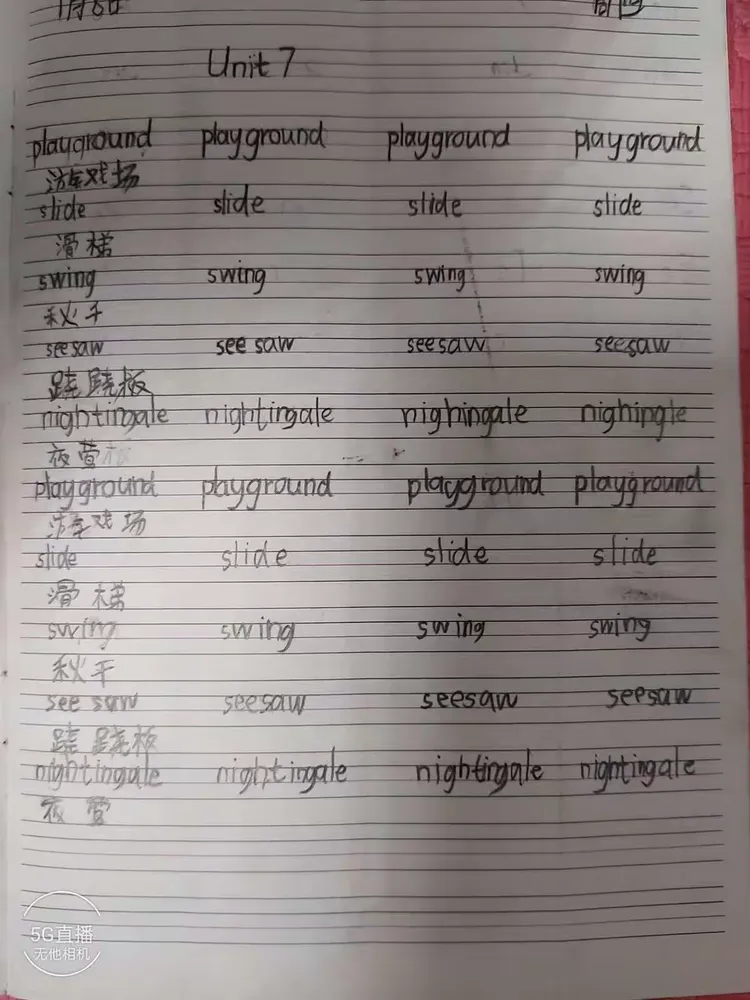 1月6日 周四
Unit 7
playground playground playground playground
游戏场
slide slide slide slide
滑梯
swing swing swing swing
秋千
seesaw see saw seesaw seesaw
跷跷板
nightingale nightingale nighingale nighingle
夜莺
playground playground playground playground
游戏场
slide slide slide slide
滑梯
swing swing swing swing
秋千
see saw seesaw seesaw seesaw
跷跷板
nightingale nightingale nightingale nightingale
夜莺
5G直播
无他相机